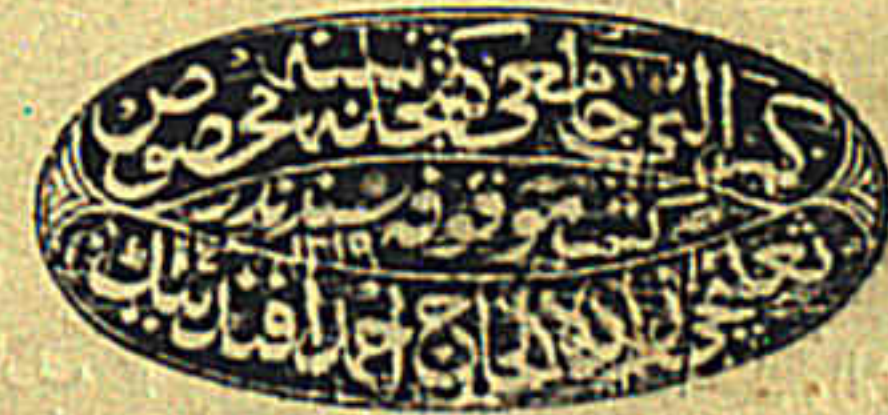 التی جامعی كتبخانه سنه مخصوص
كتب موقوفه سندندر ١٣١٩
زاده الحاج احمد افندینك